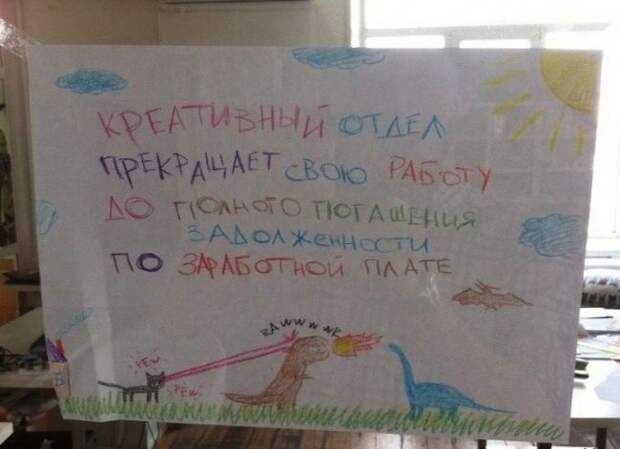 КРЕАТИВНЫЙ ОТДЕЛ
ПРЕКРАЩАЕТ СВОЮ РАБОТУ
ДО ПОЛНОГО ПОГАШЕНИЯ
ЗАДОЛЖЕННОСТИ
ПО ЗАРАБОТНОЙ ПЛАТЕ
PEW
PEW